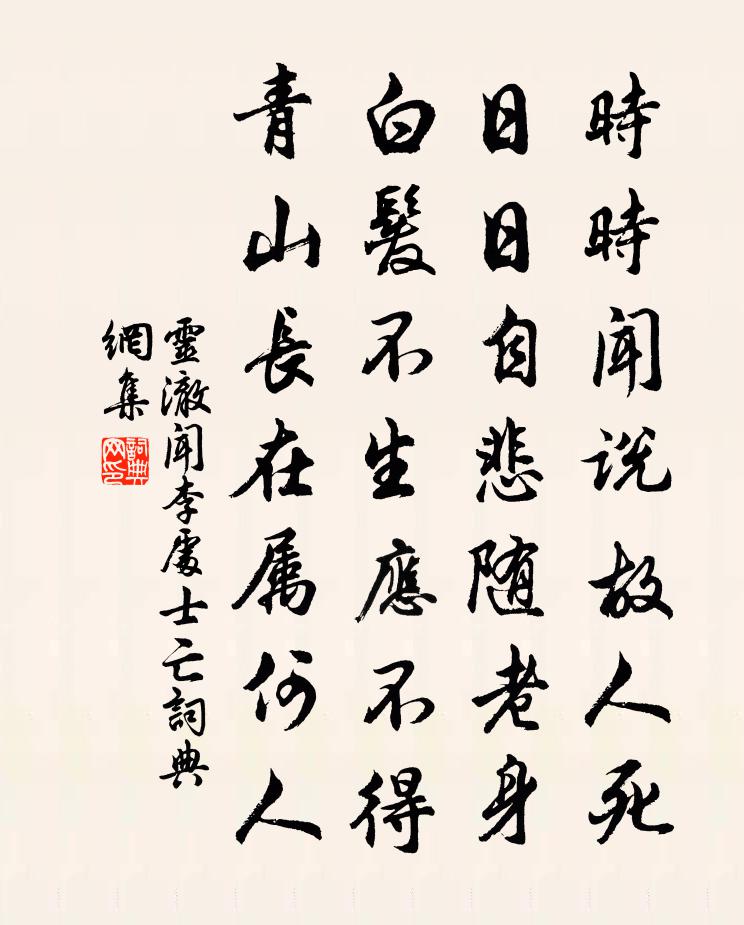 時時聞説故人死
日日自悲随老身
白髮不生應不得
青山長在属何人
靈澈聞李處士亡詞典
網集
詞典
网印